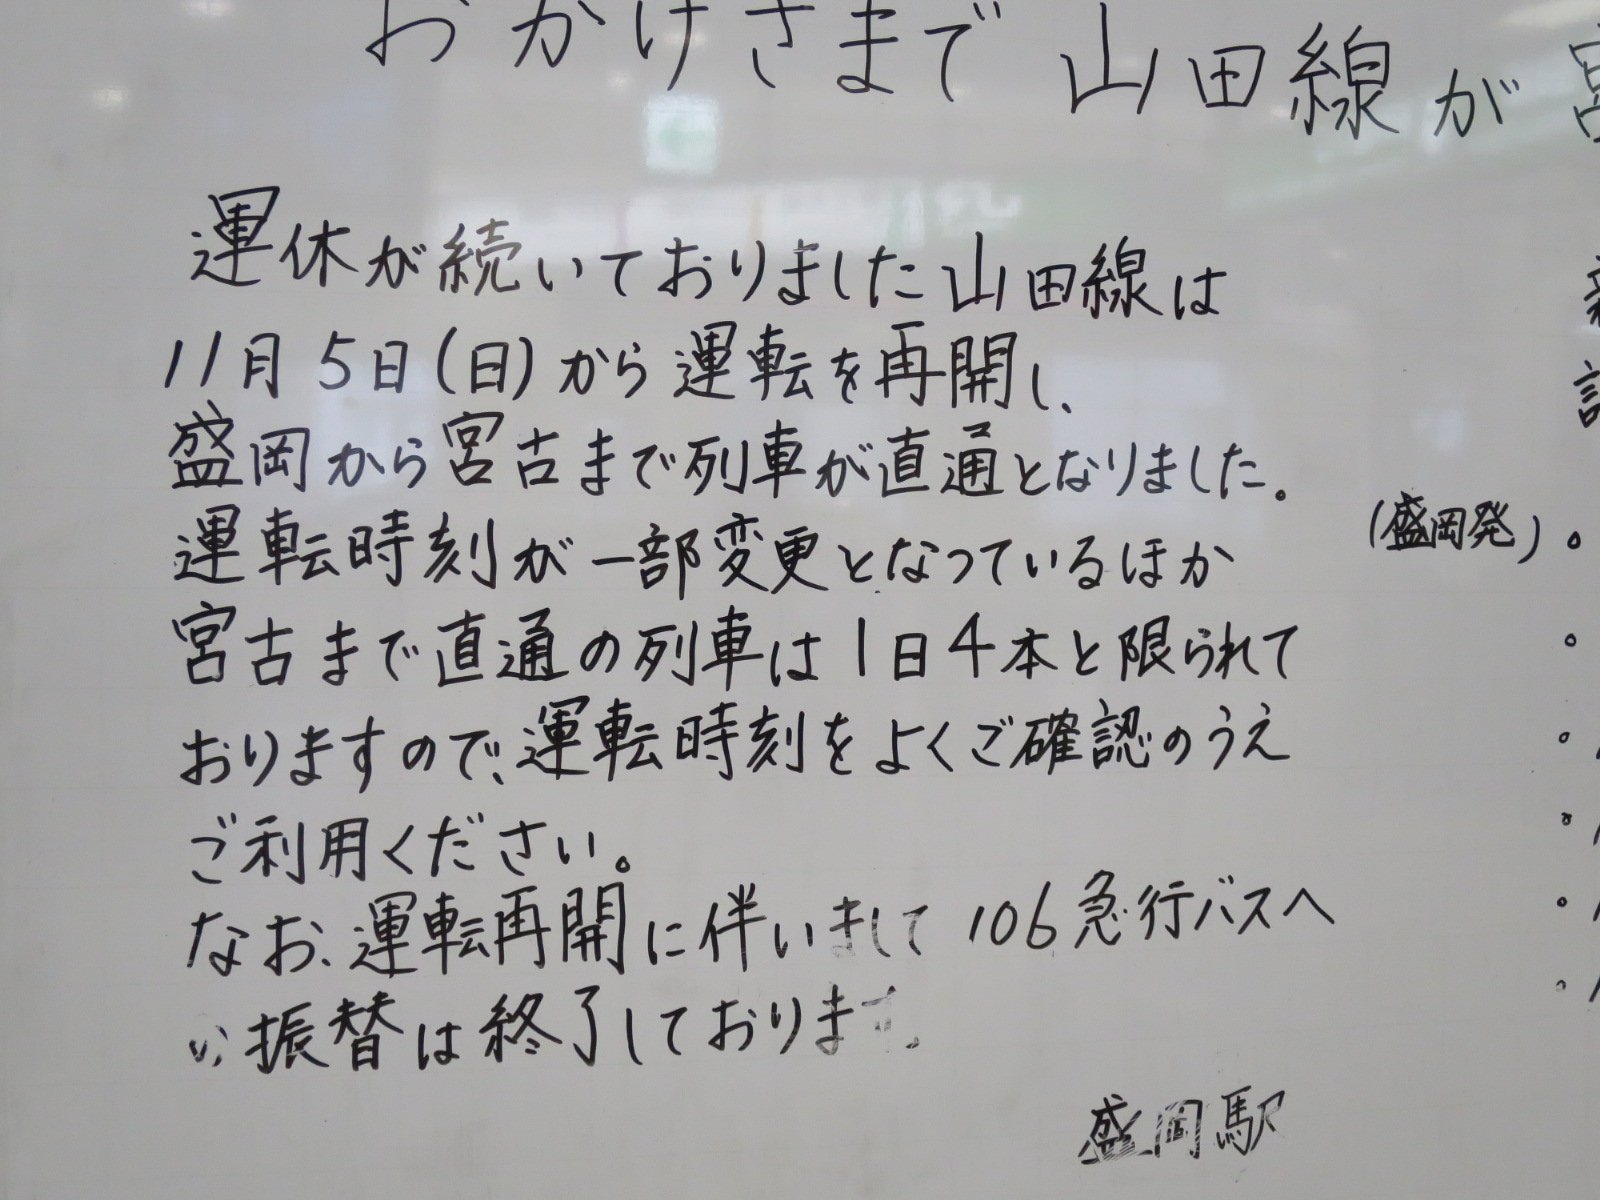 おかげさまで 山田線が
運休が続いておりました山田線は
11月5日(日)から運転を再開し、
盛岡から宮古まで列車が直通となりました。
運転時刻が一部変更となっているほか
宮古まで直通の列車は1日4本と限られて
おりますので、運転時刻をよくご確認のうえ
ご利用ください。
なお、運転再開に伴いまして 106急行バスへ
の振替は終了しております。
盛岡駅
(盛岡発)